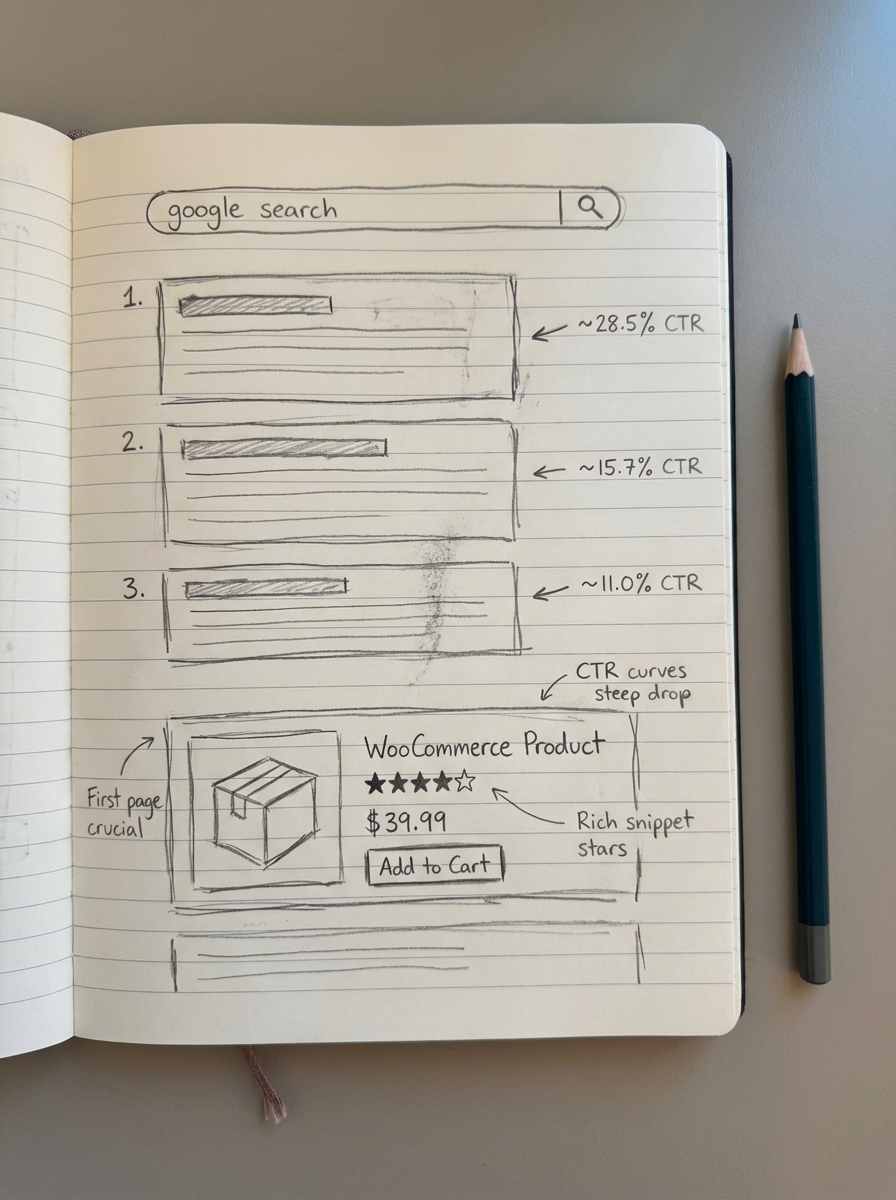 google search
1.
~28.5% CTR
2.
~15.7% CTR
3.
~11.0% CTR
CTR curves
steep drop
First page
crucial
WooCommerce Product
$39.99
Add to Cart
Rich snippet
stars